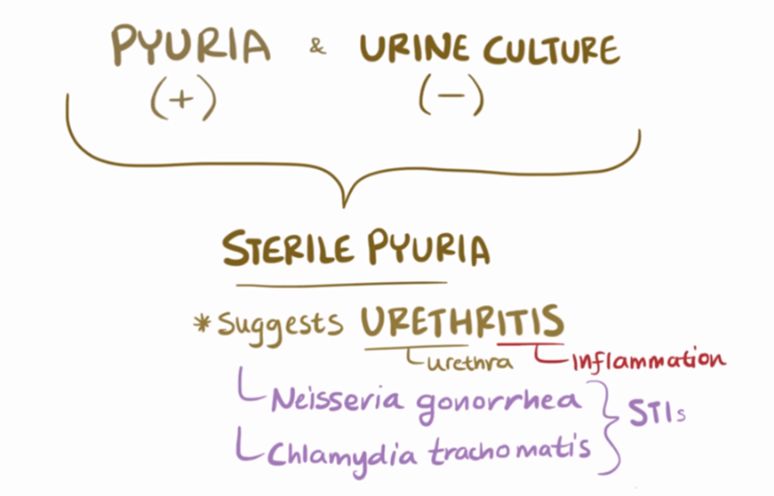 PYURIA & URINE CULTURE
(+) (−)
STERILE PYURIA
*Suggests URETHRITIS
urethra inflammation
Neisseria gonorrhea
STIs
Chlamydia trachomatis